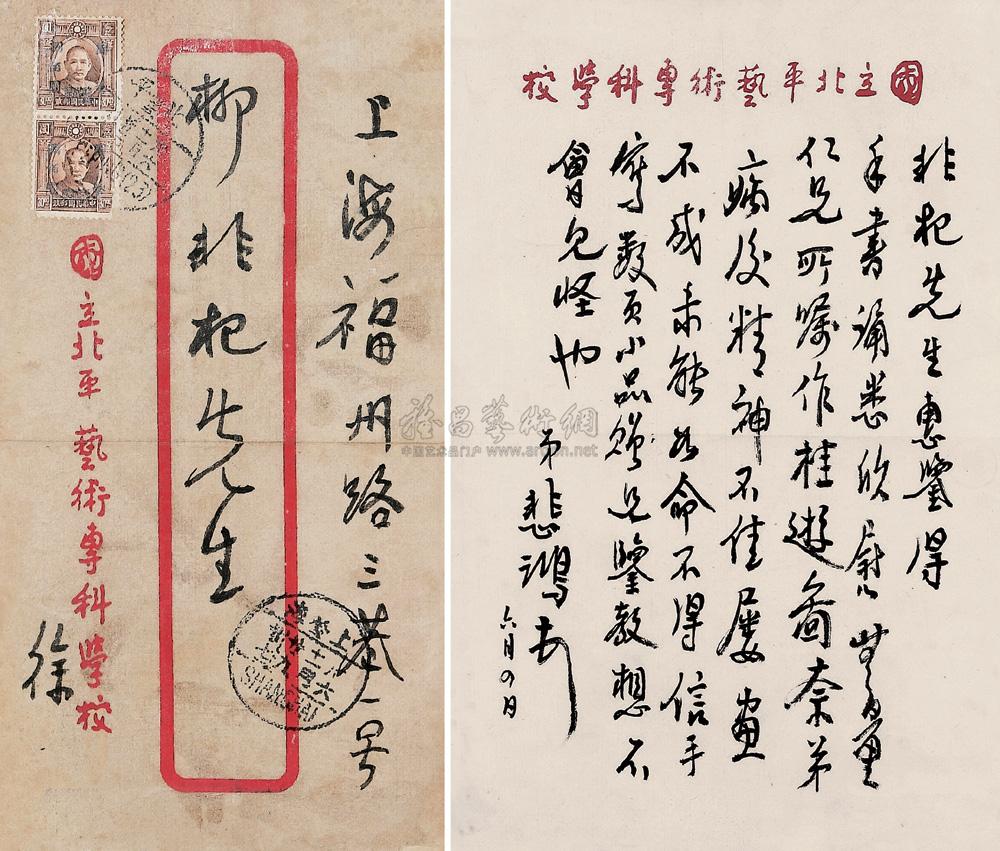 上海福州路三叁一号
柳非杞先生
國立北平藝術專科學校
徐
SHANGHAI
國立北平藝術專科學校
非杞先生惠鑒得
手書誦悉欣慰無量
仁兄所囑作桂遊圖奈弟
病後精神不佳屢畫
不成未能如命不得信手
寫數頁小品贈兄鑒教想不
會見怪也
弟悲鴻頓
六月四日